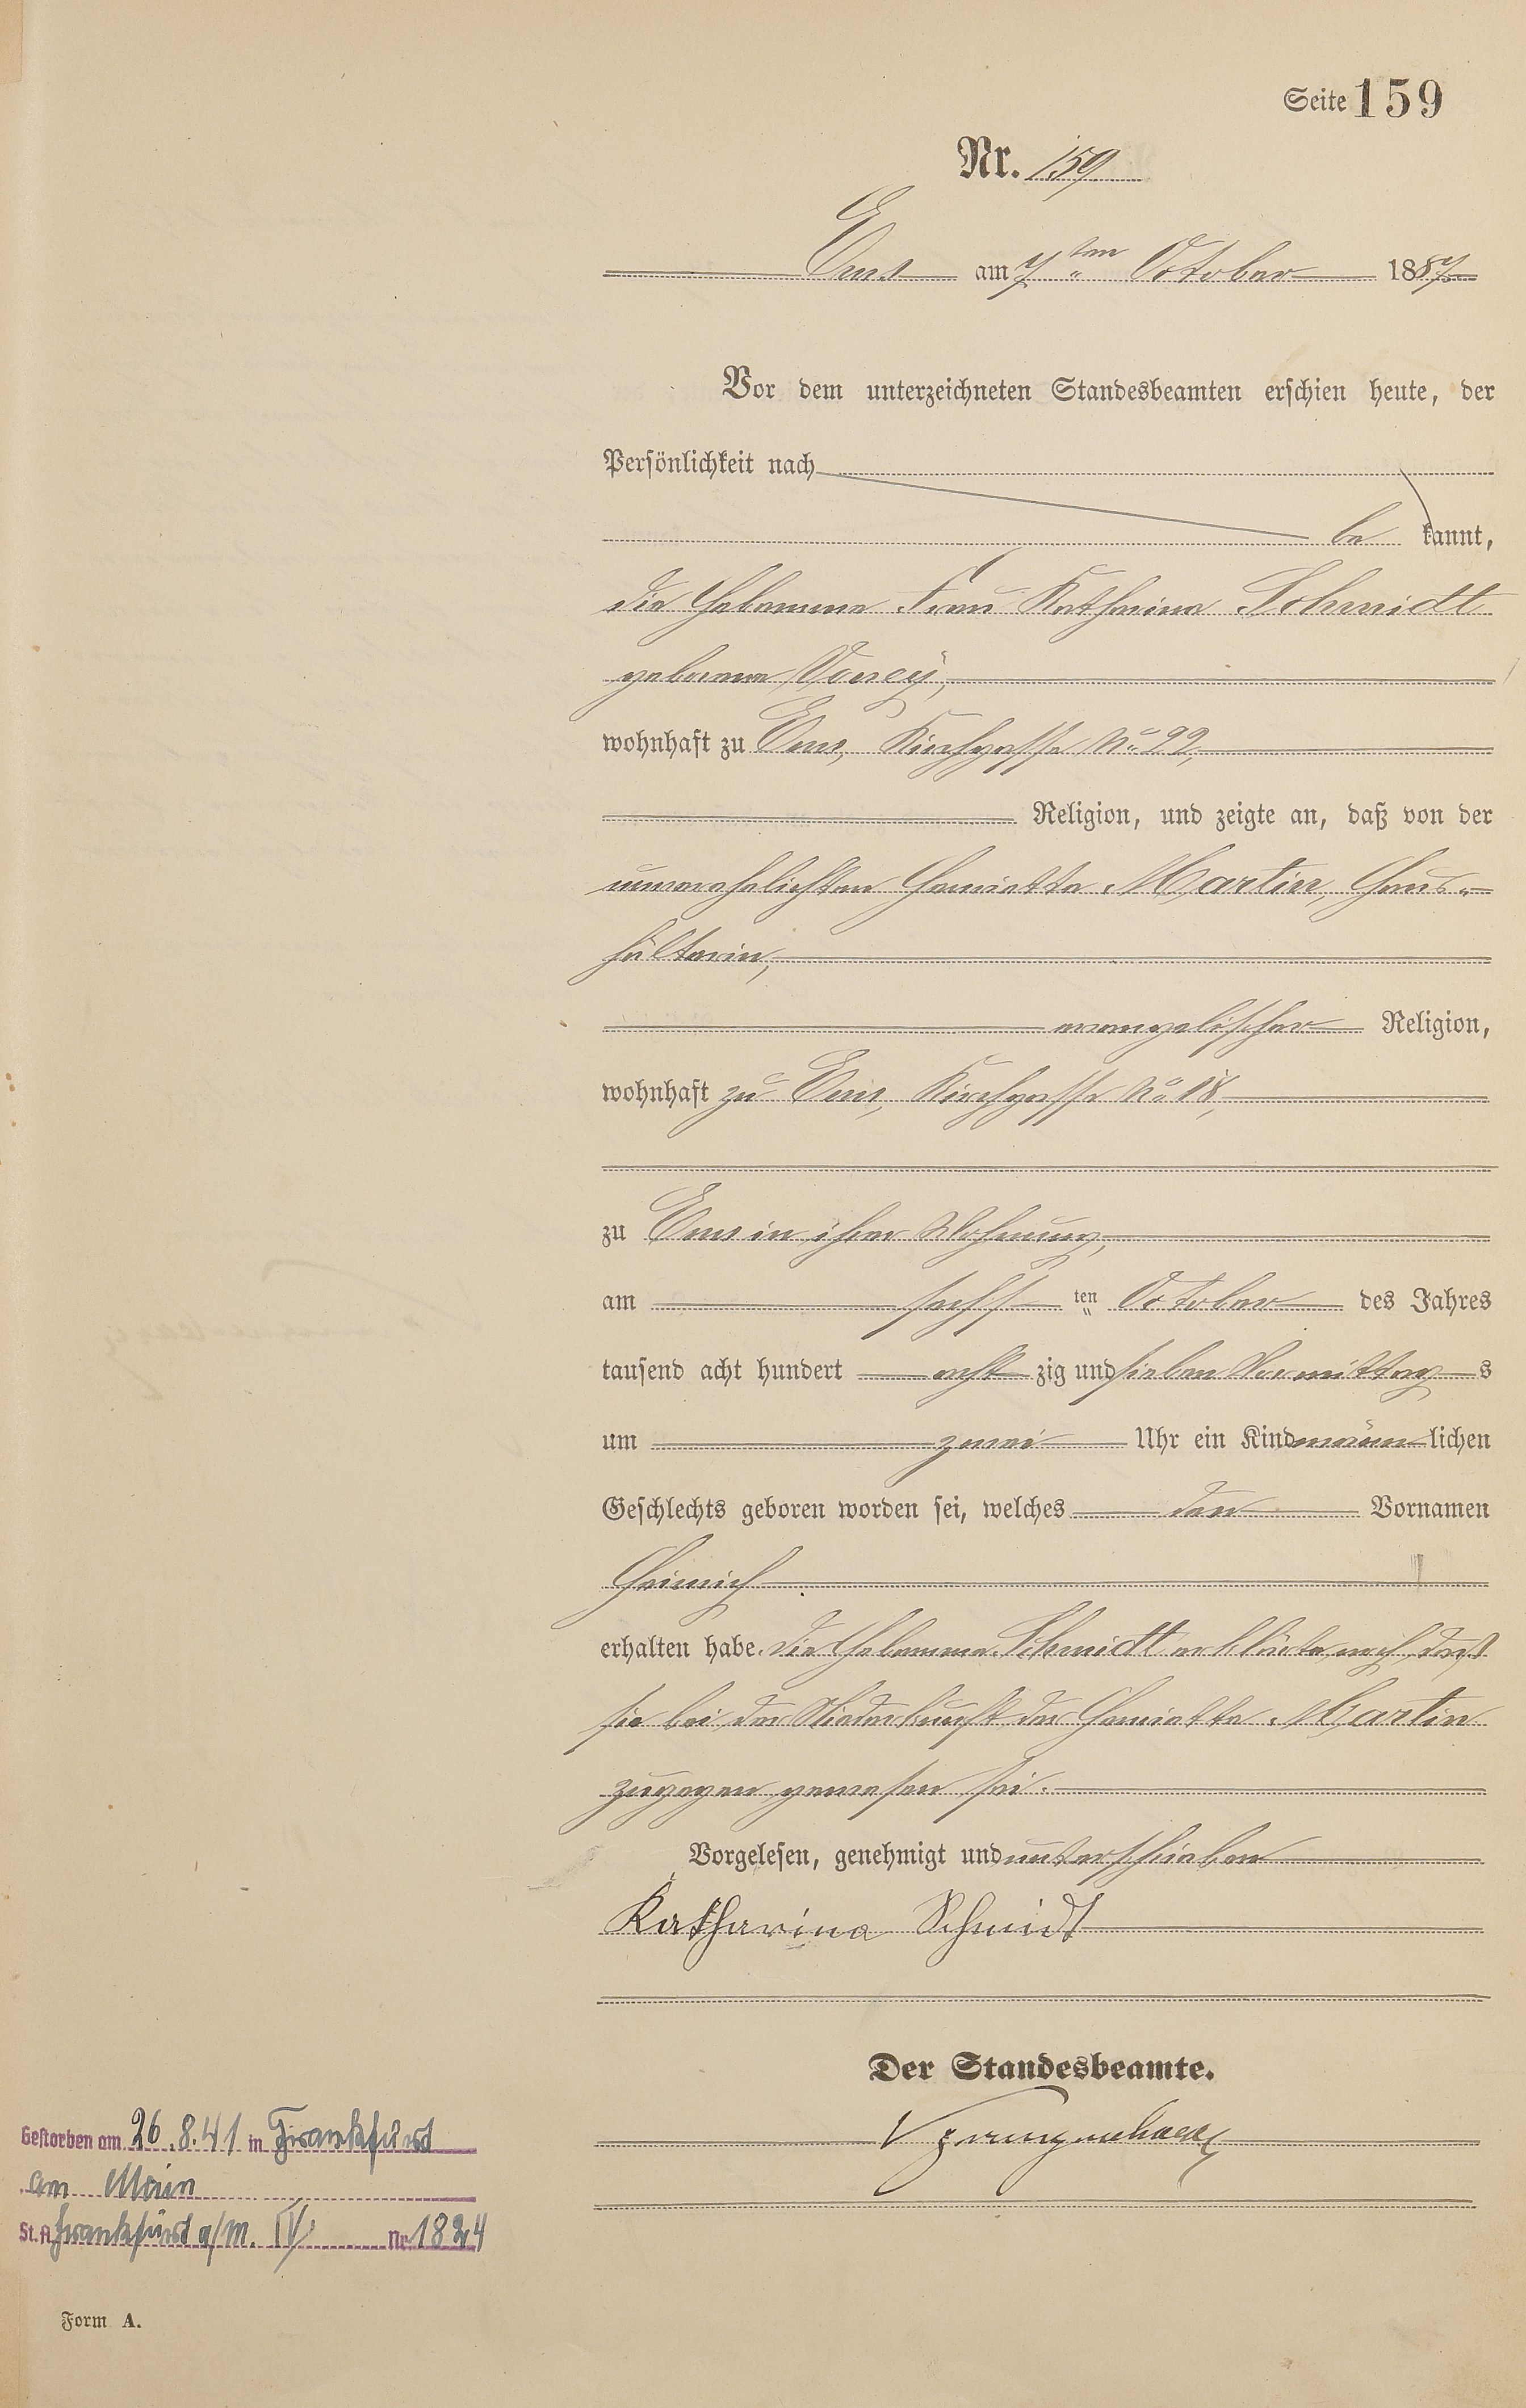 Seite 159
Nr. 159
Ems am 7ten October 1887
Vor dem unterzeichneten Standesbeamten erschien heute, der
Persönlichkeit nach
be kannt,
die Hebamme Frau Katharina Schmidt
geborene
wohnhaft zu Ems, Kirchgasse No 22,
Religion, und zeigte an, daß von der
unverehelichten Henriette Martin, Haus-
hälterin,
evangelischer Religion,
wohnhaft zu Ems, Kirchgasse No 18,
zu Ems in ihrer Wohnung,
am sechsten October des Jahres
tausend acht hundert acht zig und sieben Vormittags
um zwei Uhr ein Kind männlichen
Geschlechts geboren worden sei, welches den Vornamen
Heinrich
erhalten habe. Die Hebamme Schmidt erklärte noch, daß
sie bei der Niederkunft der Henriette Martin
zugegen gewesen sei.
Vorgelesen, genehmigt und unterschrieben
Katharina Schmidt
Der Standesbeamte.
Gestorben am 26.8.41 in Frankfurt
am Main
St.A. Frankfurt a/M. IV Nr. 1824
Form A.